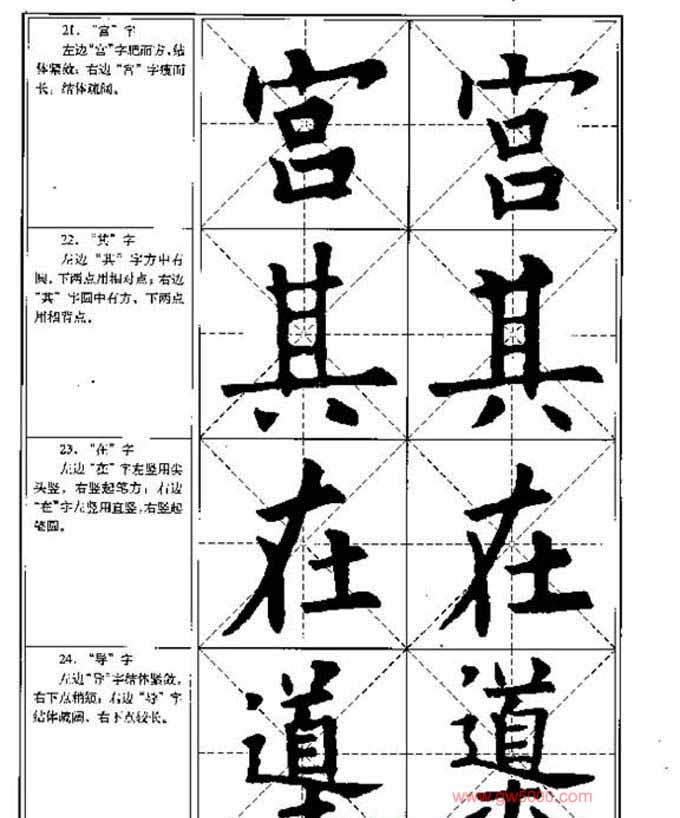 21. “宫”字
左边“宫”字肥而方,结
体紧敛;右边“宫”字瘦而
长,结体疏阔。
宫 宫
22. “其”字
左边“其”字方中有
圆,下两点用相对点;右边
“其”字圆中有方,下两点
用相背点。
其 其
23. “在”字
左边“在”字左竖用尖
头竖,右竖起笔方;右边
“在”字左竖用直竖,右竖起
笔圆。
在 在
24. “导”字
左边“导”字结体紧敛,
右下点稍短;右边“导”字
结体疏阔,右下点较长。
道 道
www.gw5000.com